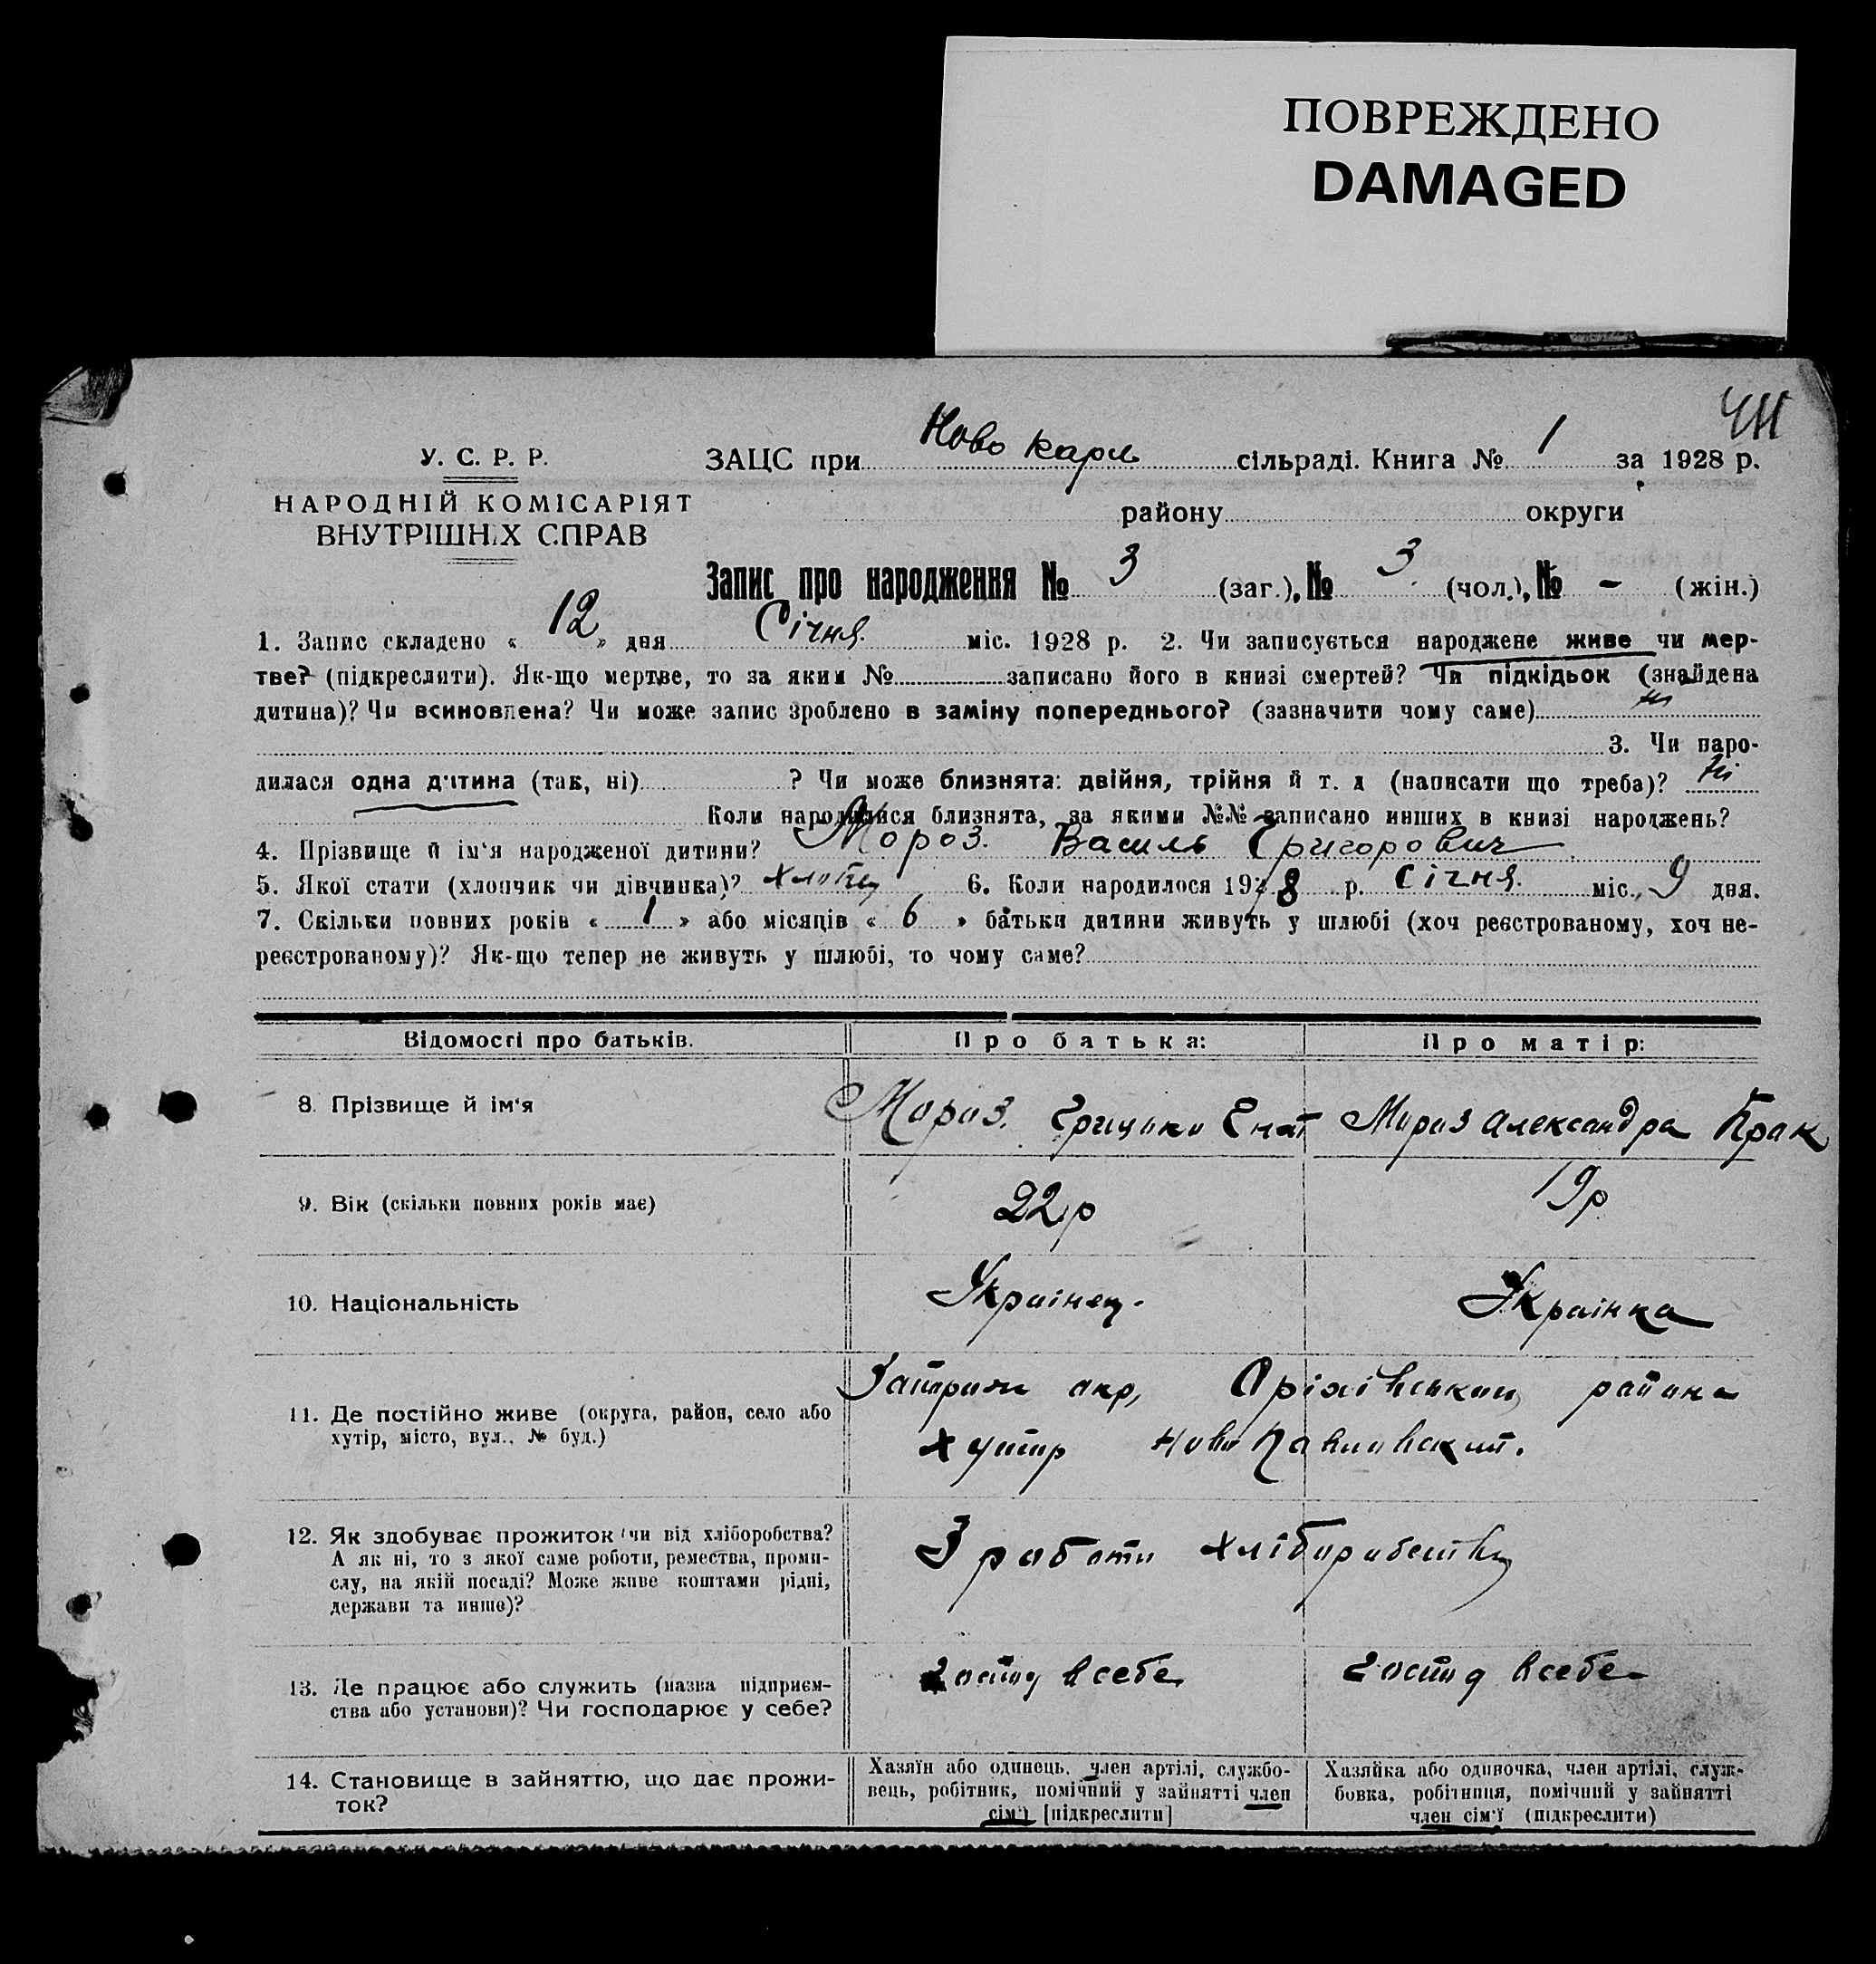 ПОВРЕЖДЕНО
DAMAGED
У. С. Р. Р.
НАРОДНІЙ КОМІСАРІЯТ
ВНУТРІШНІХ СПРАВ
ЗАЦС при Ново карл сільраді. Книга № 1 за 1928 р.
району округи
Запис про народження № 3 (заг.), № 3 (чол.), № - (жін.)
1. Запис складено « 12 » дня Січня. міс. 1928 р. 2. Чи записується народжене живе чи мер-
тве? (підкреслити). Як-що мертве, то за яким № записано його в книзі смертей? Чи підкідьок (знайдена
дитина)? Чи всиновлена? Чи може запис зроблено в заміну попереднього? (зазначити чому саме)
3. Чи наро-
дилася одна дитина (так, ні) ? Чи може близнята: двійня, трійня й т. д (написати що треба)? Ні
Коли народилися близнята, за якими №№ записано инших в книзі народжень?
4. Прізвище й ім'я народженої дитини? Мороз. Василь Григорович
5. Якої стати (хлопчик чи дівчинка)? хлопец 6. Коли народилося 1928 р. Січня. міс., 9 дня.
7. Скільки повних років « 1 » або місяців « 6 » батьки дитини живуть у шлюбі (хоч реєстрованому, хоч не-
реєстрованому)? Як-що тепер не живуть у шлюбі, то чому саме?
Відомості про батьків. Про батька: Про матір:
8. Прізвище й ім'я Мороз. Грицько Гнат Мороз Александра Прак
9. Вік (скільки повних років має) 22 р 19 р
10. Національність Українец. Українка
11. Де постійно живе (округа, район, село або
хутір, місто, вул., № буд.)
окр, Оріхівський района
хутір Ново Павловский.
12. Як здобуває прожиток (чи від хліборобства?
А як ні, то з якої саме роботи, ремества, проми-
слу, на якій посаді? Може живе коштами рідні,
держави та инше)?
З работи хліборобства
13. Де працює або служить (назва підприєм-
ства або установи)? Чи господарює у себе?
Господ в себе Господ в себе
14. Становище в зайняттю, що дає прожи-
ток?
Хазяїн або одинець, член артілі, службо-
вець, робітник, помічний у зайнятті член
сім'ї [підкреслити]
Хазяйка або одиночка, член артілі, служ-
бовка, робітниця, помічний у зайнятті
член сім'ї (підкреслити)